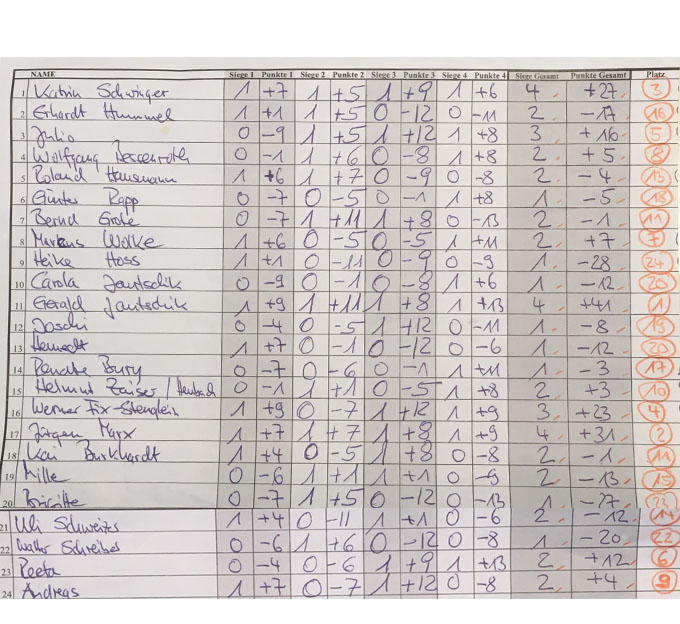 NAME Siege 1 Punkte 1 Siege 2 Punkte 2 Siege 3 Punkte 3 Siege 4 Punkte 4 Siege Gesamt Punkte Gesamt Platz
1 Katrin Schwinger 1 +7 1 +5 1 +9 1 +6 4 +27 3
2 Erhardt Hummel 1 +1 1 +5 0 -12 0 -11 2 -17 16
3 Julio 0 -9 1 +5 1 +12 1 +8 3 +16 5
4 Wolfgang Hessenroth 0 -1 1 +6 0 -8 1 +8 2 +5 8
5 Roland Hausmann 1 +6 1 +7 0 -9 0 -8 2 -4 13
6 Günter Rapp 0 -7 0 -5 0 -1 1 +8 1 -5 18
7 Bernd Grote 0 -7 1 +11 1 +8 0 -13 2 -1 11
8 Markus Wolke 1 +6 0 -5 0 -5 1 +11 2 +7 7
9 Heike Hoss 1 +1 0 -11 0 -9 0 -9 1 -28 24
10 Carola Jautschik 0 -9 0 -1 0 -8 1 +6 1 -12 20
11 Gerald Jautschik 1 +9 1 +11 1 +8 1 +13 4 +41 1
12 Joschi 0 -4 0 -5 1 +12 0 -11 1 -8 19
13 1 +7 0 -1 0 -12 0 -6 1 -12 20
14 Renate Bury 0 -7 0 -6 0 -1 1 +11 1 -3 17
15 Helmut Zaiser / 0 -1 1 +1 0 -5 1 +8 2 +3 10
16 Werner Fix-Stenglein 1 +9 0 -7 1 +12 1 +9 3 +23 4
17 Jürgen Marx 1 +7 1 +7 1 +8 1 +9 4 +31 2
18 Kai Burkhardt 1 +4 0 -5 1 +8 0 -8 2 -1 11
19 0 -6 1 +1 1 +1 0 -9 2 -13 15
20 Brigitte 0 -7 1 +5 0 -12 0 -13 1 -27 23
21 Uli Schweizer 1 +4 0 -11 1 +1 0 -6 2 -12 14
22 Walter Schreiber 0 -6 1 +6 0 -12 0 -8 1 -20 22
23 Peeta 0 -4 0 -6 1 +9 1 +13 2 +12 6
24 Andreas 1 +7 0 -7 1 +12 0 -8 2 +4 9